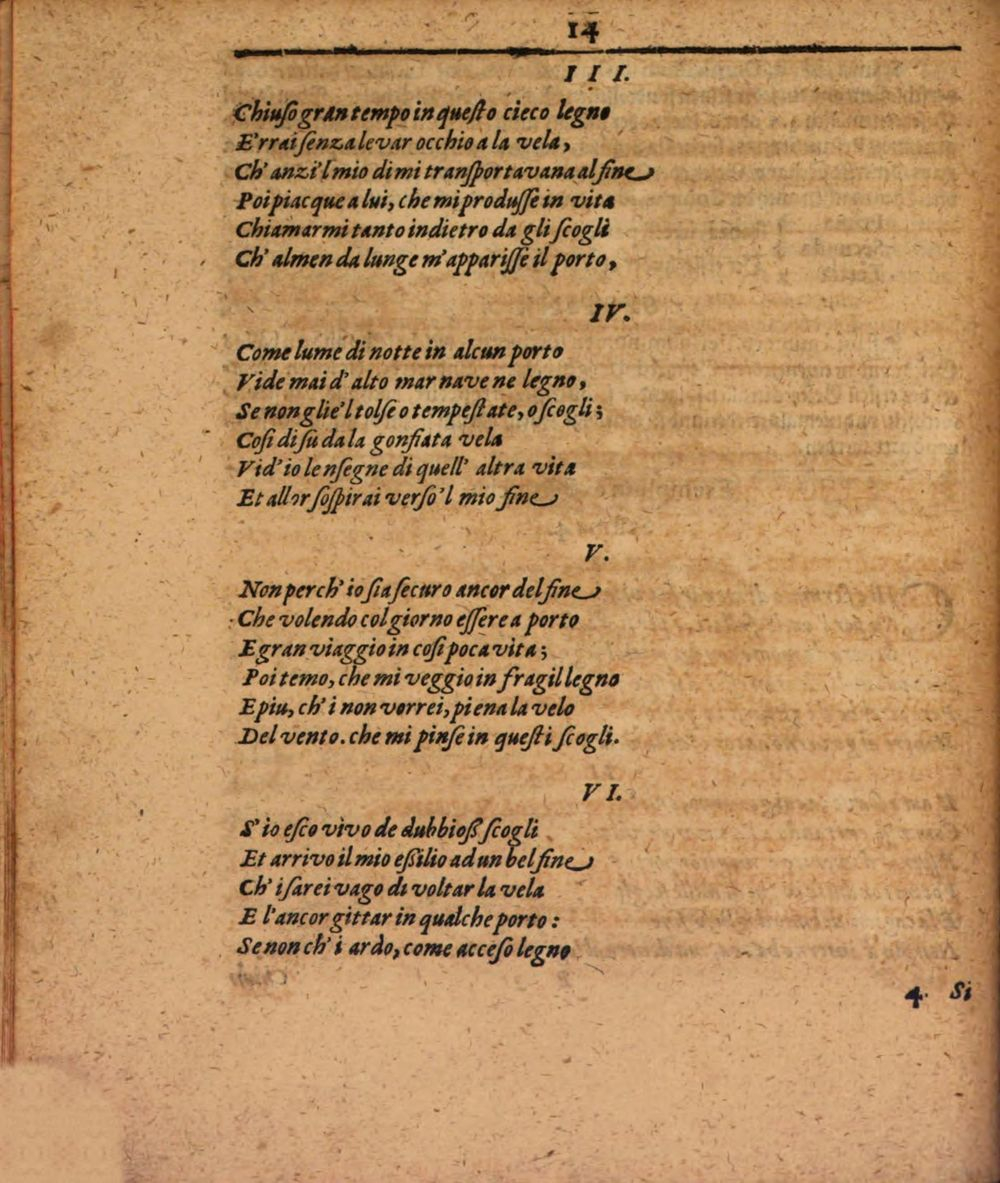 14
III.
Chiuſo gran tempo in queſto cieco legno
E'rrai ſenza levar occhio a la vela,
Ch' anzi'l mio di mi tranſportava na al fine
Poi piacque a lui, che mi produſſe in vita
Chiamarmi tanto indietro da gli ſcogli
Ch' almen da lunge m'appariſſe il porto,
IV.
Come lume di notte in alcun porto
Vide mai d' alto mar nave ne legno,
Se non glie'l tolſe o tempeſtate, o ſcogli;
Coſi di ſù da la gonfiata vela
Vid'io le nſegne di quell' altra vita
Et allor ſoſpirai verſo'l mio fine
V.
Non perch' io ſia ſecuro ancor del fine
Che volendo col giorno eſſere a porto
E gran viaggio in coſi poca vita;
Poi temo, che mi veggio in fragil legno
E piu, ch' i non vorrei, piena la velo
Del vento. che mi pinſe in queſti ſcogli.
VI.
S' io eſco vivo de dubbioſi ſcogli
Et arrivo il mio eſſilio ad un bel fine
Ch' i ſarei vago di voltar la vela
E l'ancor gittar in qualche porto:
Se non ch' i ardo, come acceſo legno
4. Si